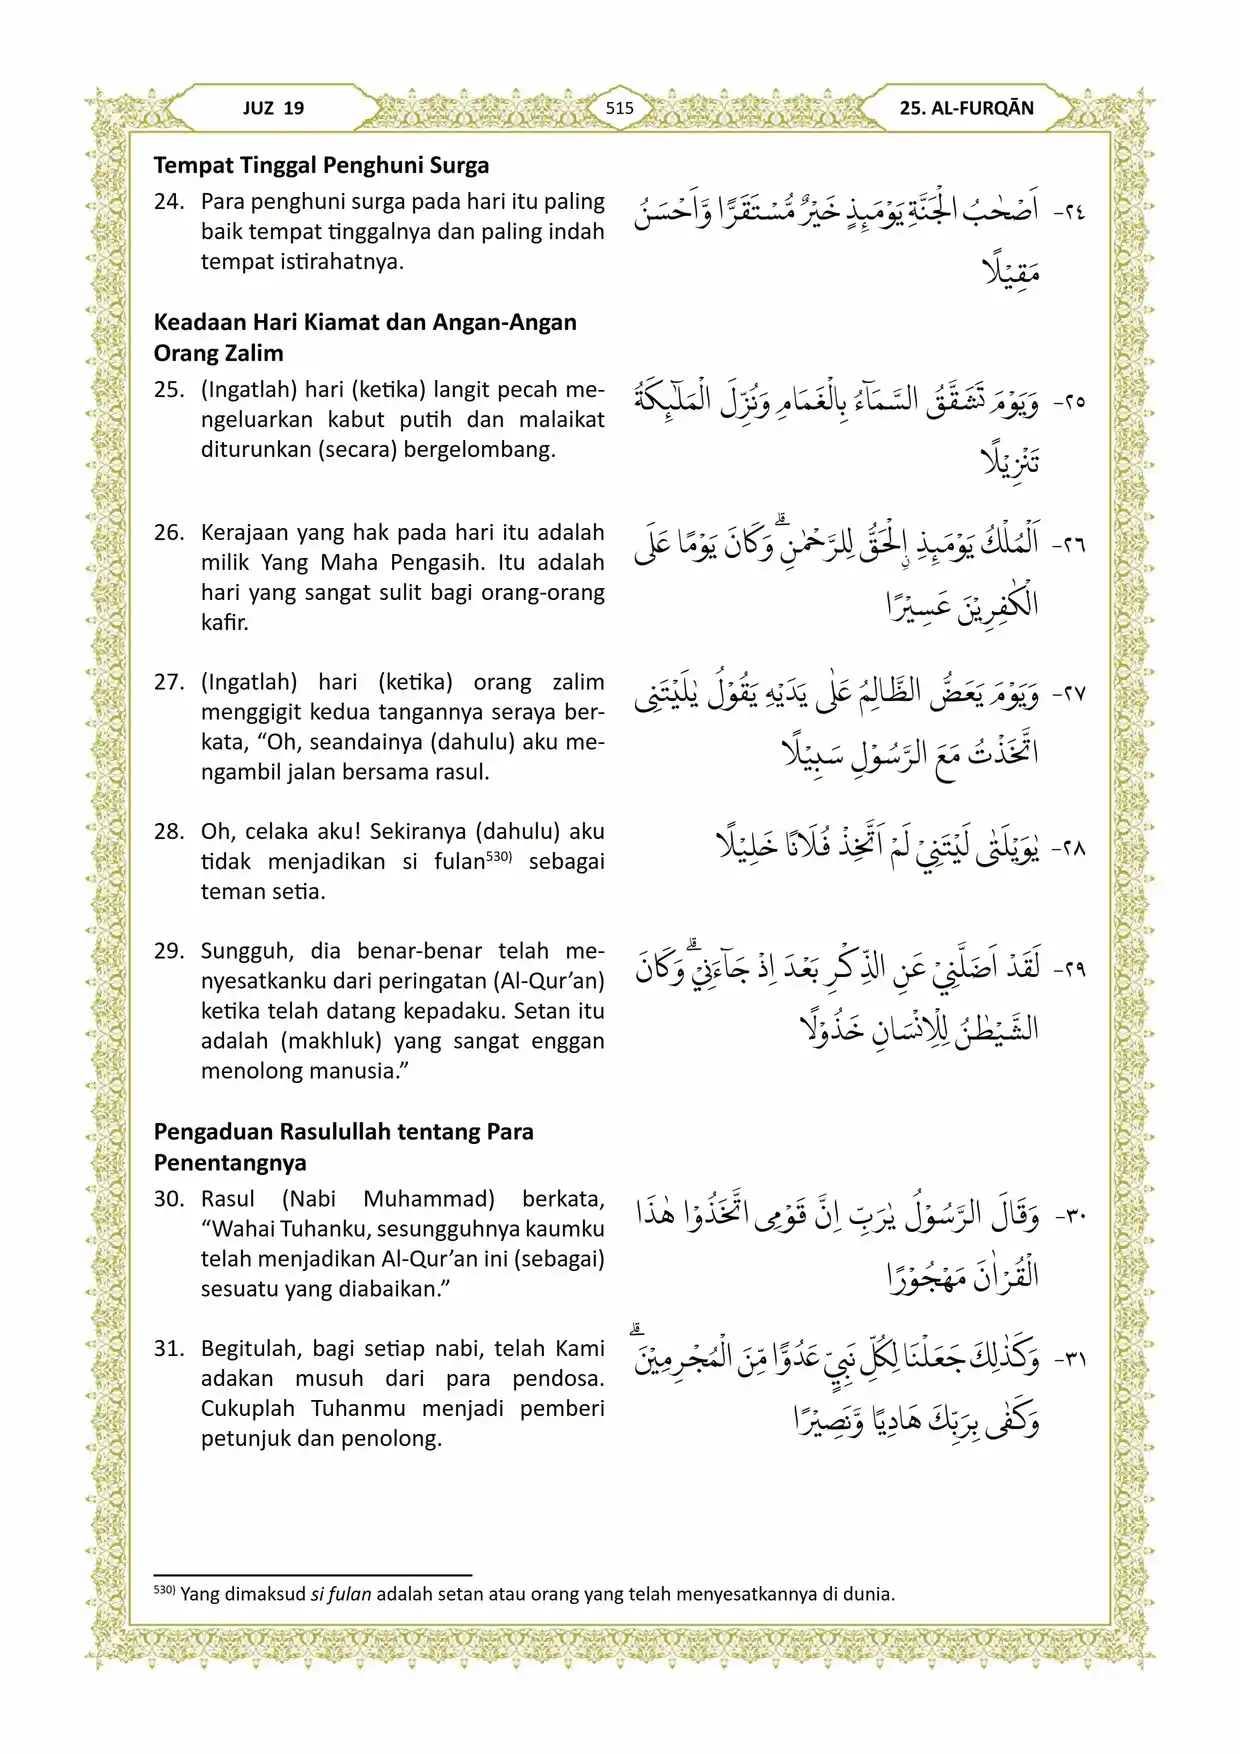 JUZ 19
515
25. AL-FURQĀN
Tempat Tinggal Penghuni Surga
24. Para penghuni surga pada hari itu paling
baik tempat tinggalnya dan paling indah
tempat istirahatnya.
٢٤- اَصْحٰبُ الْجَنَّةِ يَوْمَىِٕذٍ خَيْرٌ مُّسْتَقَرًّا وَّاَحْسَنُ
مَقِيْلًا
Keadaan Hari Kiamat dan Angan-Angan
Orang Zalim
25. (Ingatlah) hari (ketika) langit pecah me-
ngeluarkan kabut putih dan malaikat
diturunkan (secara) bergelombang.
٢٥- وَيَوْمَ تَشَقَّقُ السَّمَاۤءُ بِالْغَمَامِ وَنُزِّلَ الْمَلٰۤىِٕكَةُ
تَنْزِيْلًا
26. Kerajaan yang hak pada hari itu adalah
milik Yang Maha Pengasih. Itu adalah
hari yang sangat sulit bagi orang-orang
kafir.
٢٦- اَلْمُلْكُ يَوْمَىِٕذِ ِۨالْحَقُّ لِلرَّحْمٰنِۗ وَكَانَ يَوْمًا عَلَى
الْكٰفِرِيْنَ عَسِيْرًا
27. (Ingatlah) hari (ketika) orang zalim
menggigit kedua tangannya seraya ber-
kata, “Oh, seandainya (dahulu) aku me-
ngambil jalan bersama rasul.
٢٧- وَيَوْمَ يَعَضُّ الظَّالِمُ عَلٰى يَدَيْهِ يَقُوْلُ يٰلَيْتَنِى
اتَّخَذْتُ مَعَ الرَّسُوْلِ سَبِيْلًا
28. Oh, celaka aku! Sekiranya (dahulu) aku
tidak menjadikan si fulan530) sebagai
teman setia.
٢٨- يٰوَيْلَتٰى لَيْتَنِيْ لَمْ اَتَّخِذْ فُلَانًا خَلِيْلًا
29. Sungguh, dia benar-benar telah me-
nyesatkanku dari peringatan (Al-Qur’an)
ketika telah datang kepadaku. Setan itu
adalah (makhluk) yang sangat enggan
menolong manusia.”
٢٩- لَقَدْ اَضَلَّنِيْ عَنِ الذِّكْرِ بَعْدَ اِذْ جَاۤءَنِيْۗ وَكَانَ
الشَّيْطٰنُ لِلْاِنْسَانِ خَذُوْلًا
Pengaduan Rasulullah tentang Para
Penentangnya
30. Rasul (Nabi Muhammad) berkata,
“Wahai Tuhanku, sesungguhnya kaumku
telah menjadikan Al-Qur’an ini (sebagai)
sesuatu yang diabaikan.”
٣٠- وَقَالَ الرَّسُوْلُ يٰرَبِّ اِنَّ قَوْمِى اتَّخَذُوْا هٰذَا
الْقُرْاٰنَ مَهْجُوْرًا
31. Begitulah, bagi setiap nabi, telah Kami
adakan musuh dari para pendosa.
Cukuplah Tuhanmu menjadi pemberi
petunjuk dan penolong.
٣١- وَكَذٰلِكَ جَعَلْنَا لِكُلِّ نَبِيٍّ عَدُوًّا مِّنَ الْمُجْرِمِيْنَۗ
وَكَفٰى بِرَبِّكَ هَادِيًا وَّنَصِيْرًا
530) Yang dimaksud si fulan adalah setan atau orang yang telah menyesatkannya di dunia.